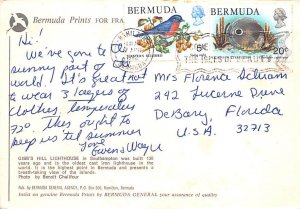 Bermuda Prints FOR FRA
BERMUDA
BERMUDA
20c
Hi!
We've gone to the
sunny part of the
world. It's great not
to wear 3 layers of
clothes, temperature
72°. This ought to
keep us til summer
Love
Gwen & Wayne
Mrs Florence
242 Lucerne Drive
DeBary, Florida
U.S.A. 32713
GIBB'S HILL LIGHTHOUSE in Southampton was built 138
years ago and is the oldest cast iron lighthouse in the
world. It is the highest point in Bermuda and presents a
breath-taking view of the islands.
Photo by Benoit Chalifour
Pub. by BERMUDA GENERAL AGENCY, P.O. BOX 696, Hamilton, Bermuda
Insist on genuine Bermuda Prints by BERMUDA GENERAL your assurance of quality